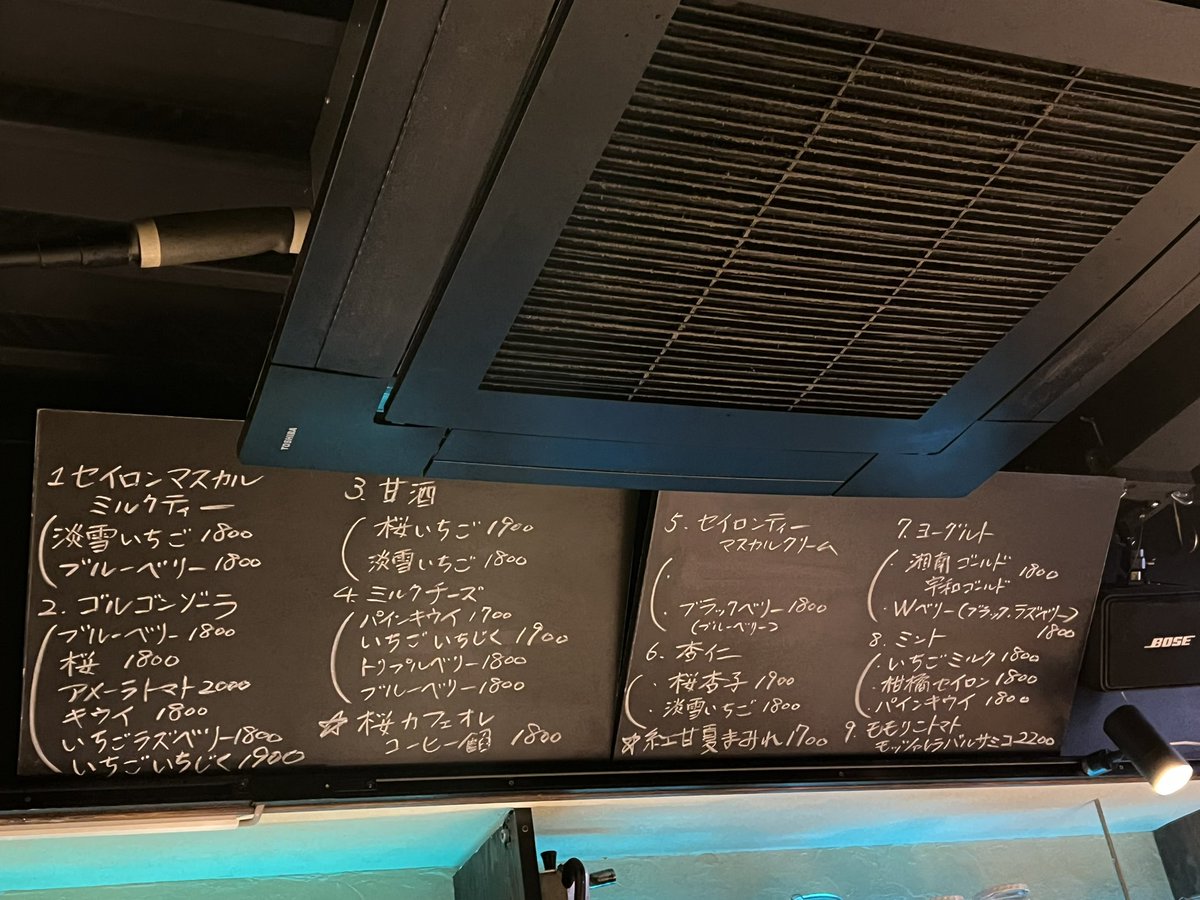 TOSHIBA
1 セイロンマスカル
ミルクティー
淡雪いちご 1800
ブルーベリー 1800
2. ゴルゴンゾーラ
ブルーベリー 1800
桜 1800
アメーラトマト 2000
キウイ 1800
いちごラズベリー 1800
いちごいちじく 1900
3. 甘酒
桜いちご 1900
淡雪いちご 1800
4. ミルクチーズ
パインキウイ 1700
いちごいちじく 1900
トリプルベリー 1800
ブルーベリー 1800
☆ 桜カフェオレ
コーヒー餡 1800
5. セイロンティー
マスカルクリーム
・
・ブラックベリー 1800
(ブルーベリー)
6. 杏仁
・桜杏子 1900
・淡雪いちご 1800
☆紅甘夏まみれ 1700
7. ヨーグルト
・湘南ゴールド 1800
宇和ゴールド
・Wベリー(ブラック、ラズベリー)
1800
8. ミント
・いちごミルク 1800
・柑橘セイロン 1800
・パインキウイ 1800
9. モモリこトマト
モッツァレラバルサミコ 2200
BOSE